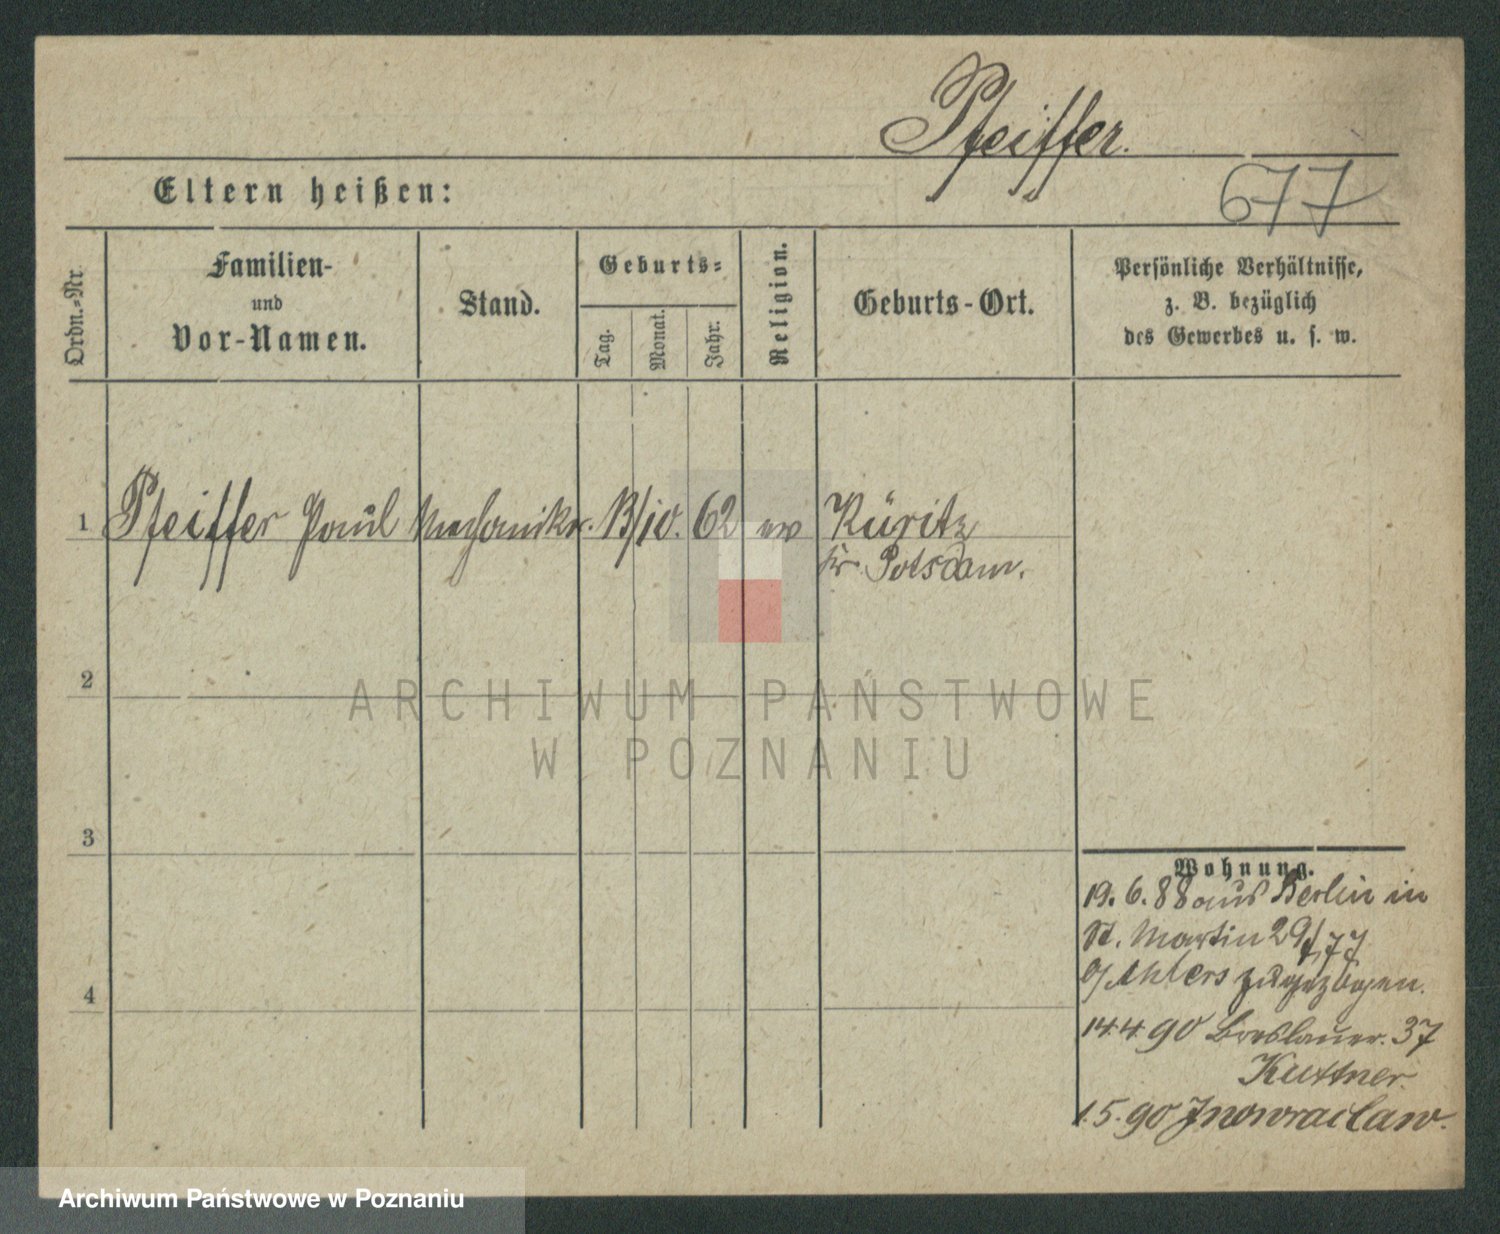 Pfeiffer.
677
Eltern heißen:
Ordn.-Nr.
Familien-
und
Vor-Namen.
Stand.
Geburts-
Tag.
Monat.
Jahr.
Religion.
Geburts-Ort.
Persönliche Verhältnisse,
z. B. bezüglich
des Gewerbes u. s. w.
1 Pfeiffer Paul Mechaniker. 13/10. 62 ev Küritz
Kr. Potsdam.
2
3
4
Wohnung.
19. 6. 88 aus Berlin in
St. Martin 29/77
b/ Ahlers zugezogen.
14.4.90 Breslauer. 37
Kuttner.
1.5.90 Inowraclaw.
ARCHIWUM PAŃSTWOWE
W POZNANIU
Archiwum Państwowe w Poznaniu